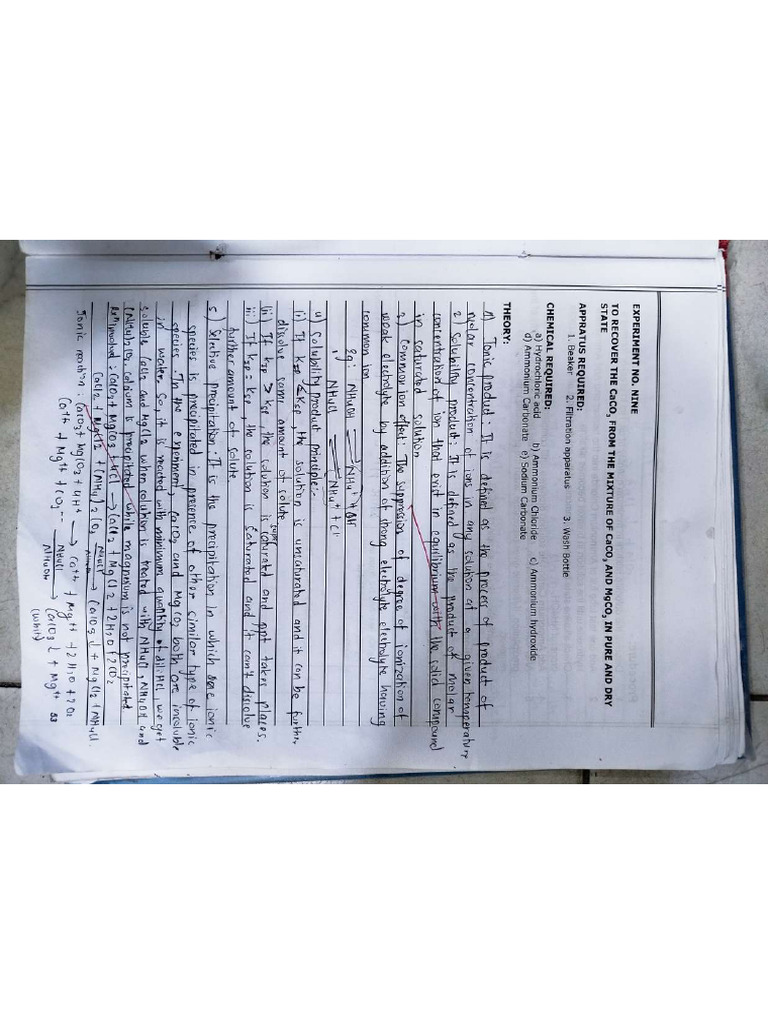 EXPERIMENT NO. NINE
TO RECOVER THE CaCO3 FROM THE MIXTURE OF CaCO3 AND MgCO3 IN PURE AND DRY
STATE
APPRATUS REQUIRED:
1. Beaker 2. Filtration apparatus 3. Wash Bottle
CHEMICAL REQUIRED:
a) Hydrochloric acid b) Ammonium Chloride c) Ammonium hydroxide
d) Ammonium Carbonate e) Sodium Carbonate
THEORY:
1) Ionic product: It is defined as the process of product of
molar concentration of ions in any solution at a given temperature
2) Solubility product: It is defined as the product of molar
concentration of ion that exist in equilibrium with the solid compound
in saturated solution
2) Common ion effect: The suppression of degree of ionization of
weak electrolyte by addition of strong electrolyte electrolyte having
common ion
Eg: NH4OH ⇌ NH4+ + OH-
NH4Cl ⇌ NH4+ + Cl-
4) Solubility product principle:-
(i) If KIP < KSP, the solution is unsaturated and it can be further
dissolve some amount of solute
(ii) If KIP > KSP, the solution is super saturated and ppt takes places.
iii) If KIP = KSP, the solution is saturated and it can't dissolve
further amount of solute
5) Selective precipitation: It is the precipitation in which one ionic
species is precipitated in presence of other similar type of ionic
species. In the experiment, CaCO3 and MgCO3 both are insoluble
in water. So, it is reacted with minimum quantity of dil. HCl, we get
soluble CaCl2 and MgCl2 when solution is treated with NH4Cl, NH4OH and
(NH4)2CO3 calcium is precipitated while magnesium is not precipitated
CaCO3 + MgCO3 + 4Cl → CaCl2 + MgCl2 + 2H2O + 2CO2
CaCl2 + MgCl2 + (NH4)2CO3 NH4Cl → CaCO3↓ + MgCl2 + NH4Cl.
Ionic reaction: CaCO3 + MgCO3 + 4H+ → Ca++ + Mg++ + 2H2O +
Ca++ + Mg++ + CO3-- NH4Cl → NH4OH CaCO3↓ + Mg++
(white)
53